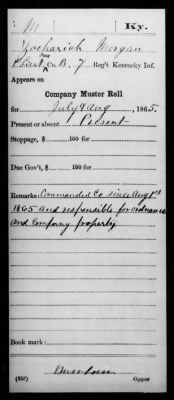 M Ky.
Zachariah Morgan
Co. B, 7 Reg't Kentucky Inf.
Appears on
Company Muster Roll
for July & Aug, 1865.
Present or absent Present
Stoppage, $ 100 for
Due Gov't, $ 100 for
Remarks: Commanded Co since Aug 1st
1865 and responsible for ordnance
and Company property
Book mark:
(358) Copyist.